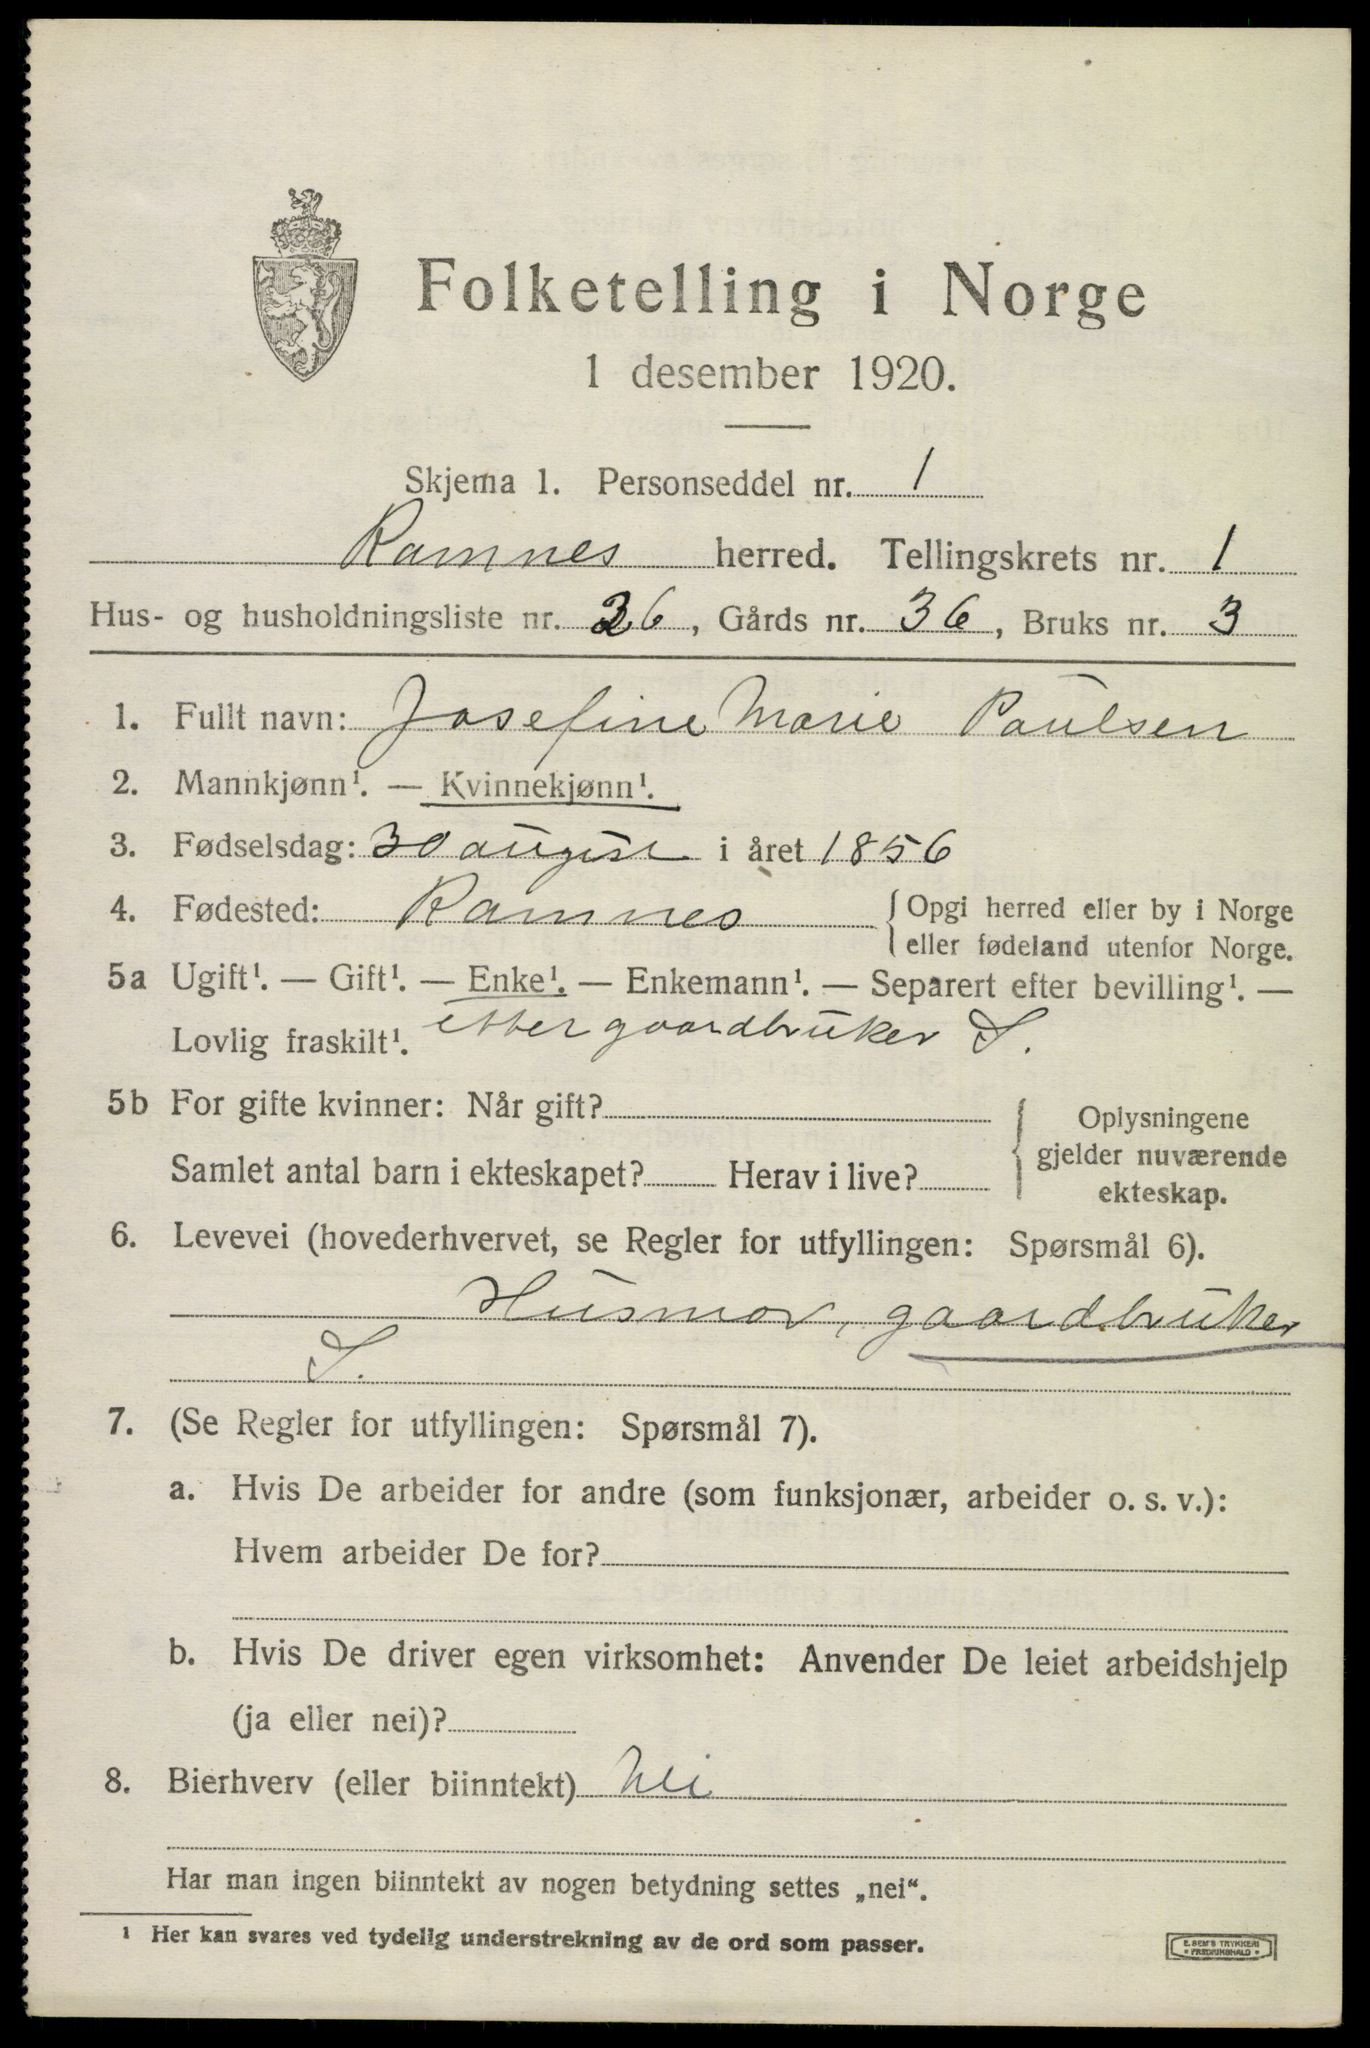 Folketelling i Norge
1 desember 1920.
Skjema 1. Personseddel nr. 1
Ramnes herred. Tellingskrets nr. 1
Hus- og husholdningsliste nr. 26, Gårds nr. 36, Bruks nr. 3
1. Fullt navn: Josefine Marie Paulsen
2. Mannkjønn¹. — Kvinnekjønn¹.
3. Fødselsdag: 30 august i året 1856
4. Fødested: Ramnes {Opgi herred eller by i Norge
eller fødeland utenfor Norge.
5a Ugift¹. — Gift¹. — Enke¹. — Enkemann¹. — Separert efter bevilling¹. —
Lovlig fraskilt¹. etter gaardbruker S.
5b For gifte kvinner: Når gift?
Samlet antal barn i ekteskapet? Herav i live?
{Oplysningene
gjelder nuværende
ekteskap.
6. Levevei (hovederhvervet, se Regler for utfyllingen: Spørsmål 6).
Husmor, gaardbruker
S.
7. (Se Regler for utfyllingen: Spørsmål 7).
a. Hvis De arbeider for andre (som funksjonær, arbeider o. s. v.):
Hvem arbeider De for?
b. Hvis De driver egen virksomhet: Anvender De leiet arbeidshjelp
(ja eller nei)?
8. Bierhverv (eller biinntekt) Nei
Har man ingen biinntekt av nogen betydning settes „nei“.
¹ Her kan svares ved tydelig understrekning av de ord som passer.
E. SEM'S TRYKKERI
* FREDRIKSHALD *